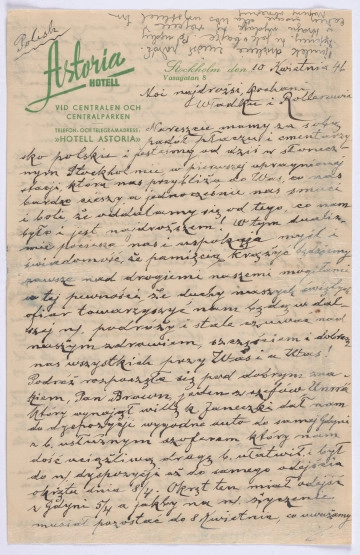 Polish
Astoria
HOTELL
VID CENTRALEN OCH
CENTRALPARKEN
TELEFON- OCH TELEGRAMADRESS:
»HOTELL ASTORIA»
Stockholm den 10 Kwietnia 46
Vasagatan 8
Moi najdrożsi, Kochani
Władku i
Nareszcie mamy za sobą
padół płaczu i cmentarzy-
sko polskie i jesteśmy od dziś w słonecz-
nym Stockholmie, w pierwszej upragnionej
stacji, która nas przybliża do Was, co nas
bardzo cieszy a jednocześnie nas smuci
i boli że oddalamy się od tego, co nam
było i jest najdroższem! W tym dualiz-
mie pociesza nas i uspokaja myśl i
świadomość, że pamięcią krążyć będziemy
zawsze nad drogiemi naszemi mogiłami
w tej pewności, że duchy naszych świętych
ofiar towarzyszyć nam będą w dal-
szej n. podróży i stale czuwać nad
naszym zdrowiem, szczęściem i dobrem
nas wszystkich przy Was i u Was!
Podróż rozpoczęła się pod dobrym zna-
kiem, Pan Brown, jeden z szefów Unrra
który wynajął willę Janeczki dał nam
do dyspozycji wygodne auto do samej Gdyni
z b. usłużnym szoferem który nam
dość uciążliwą drogę b. ułatwił i był
do n. dyspozycji aż do samego odejścia
okrętu dnia 8/4. Okręt ten miał odejść
z Gdyni 5/4 a jakby na n. życzenie
musiał pozostać do 8 Kwietnia, co uważamy